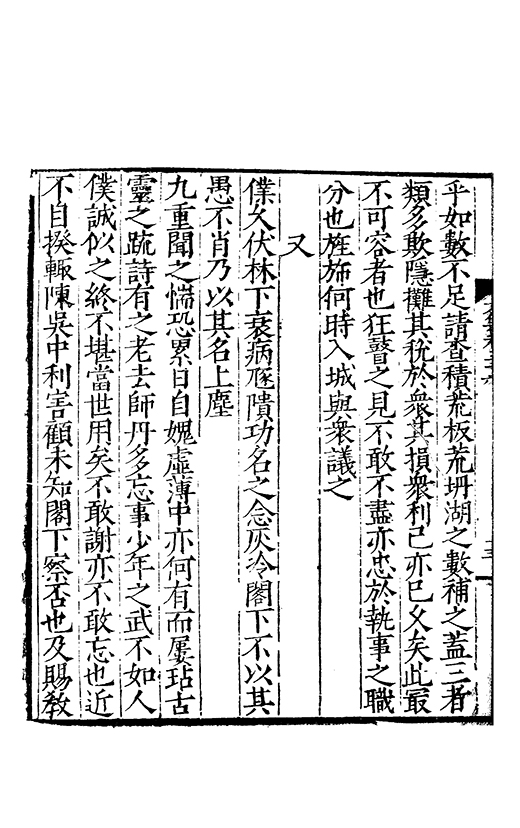 乎如數不足請查積荒板荒坍湖之數補之蓋三者
類多欺隱攤其稅於衆其損衆利己亦已久矣此㝡
不可容者也狂瞽之見不敢不盡亦忠於執事之職
分也旌斾何時入城與衆議之
又
僕久伏林下衰病隳隤功名之念灰冷閣下不以其
愚不肖乃以其名上塵
九重聞之惴恐累日自媿虛薄中亦何有而屢玷古
靈之䟽詩有之老去師丹多忘事少年之武不如人
僕誠似之終不堪當世用矣不敢謝亦不敢忘也近
不自揆輙陳吳中利害顧未知閣下察否也及賜敎